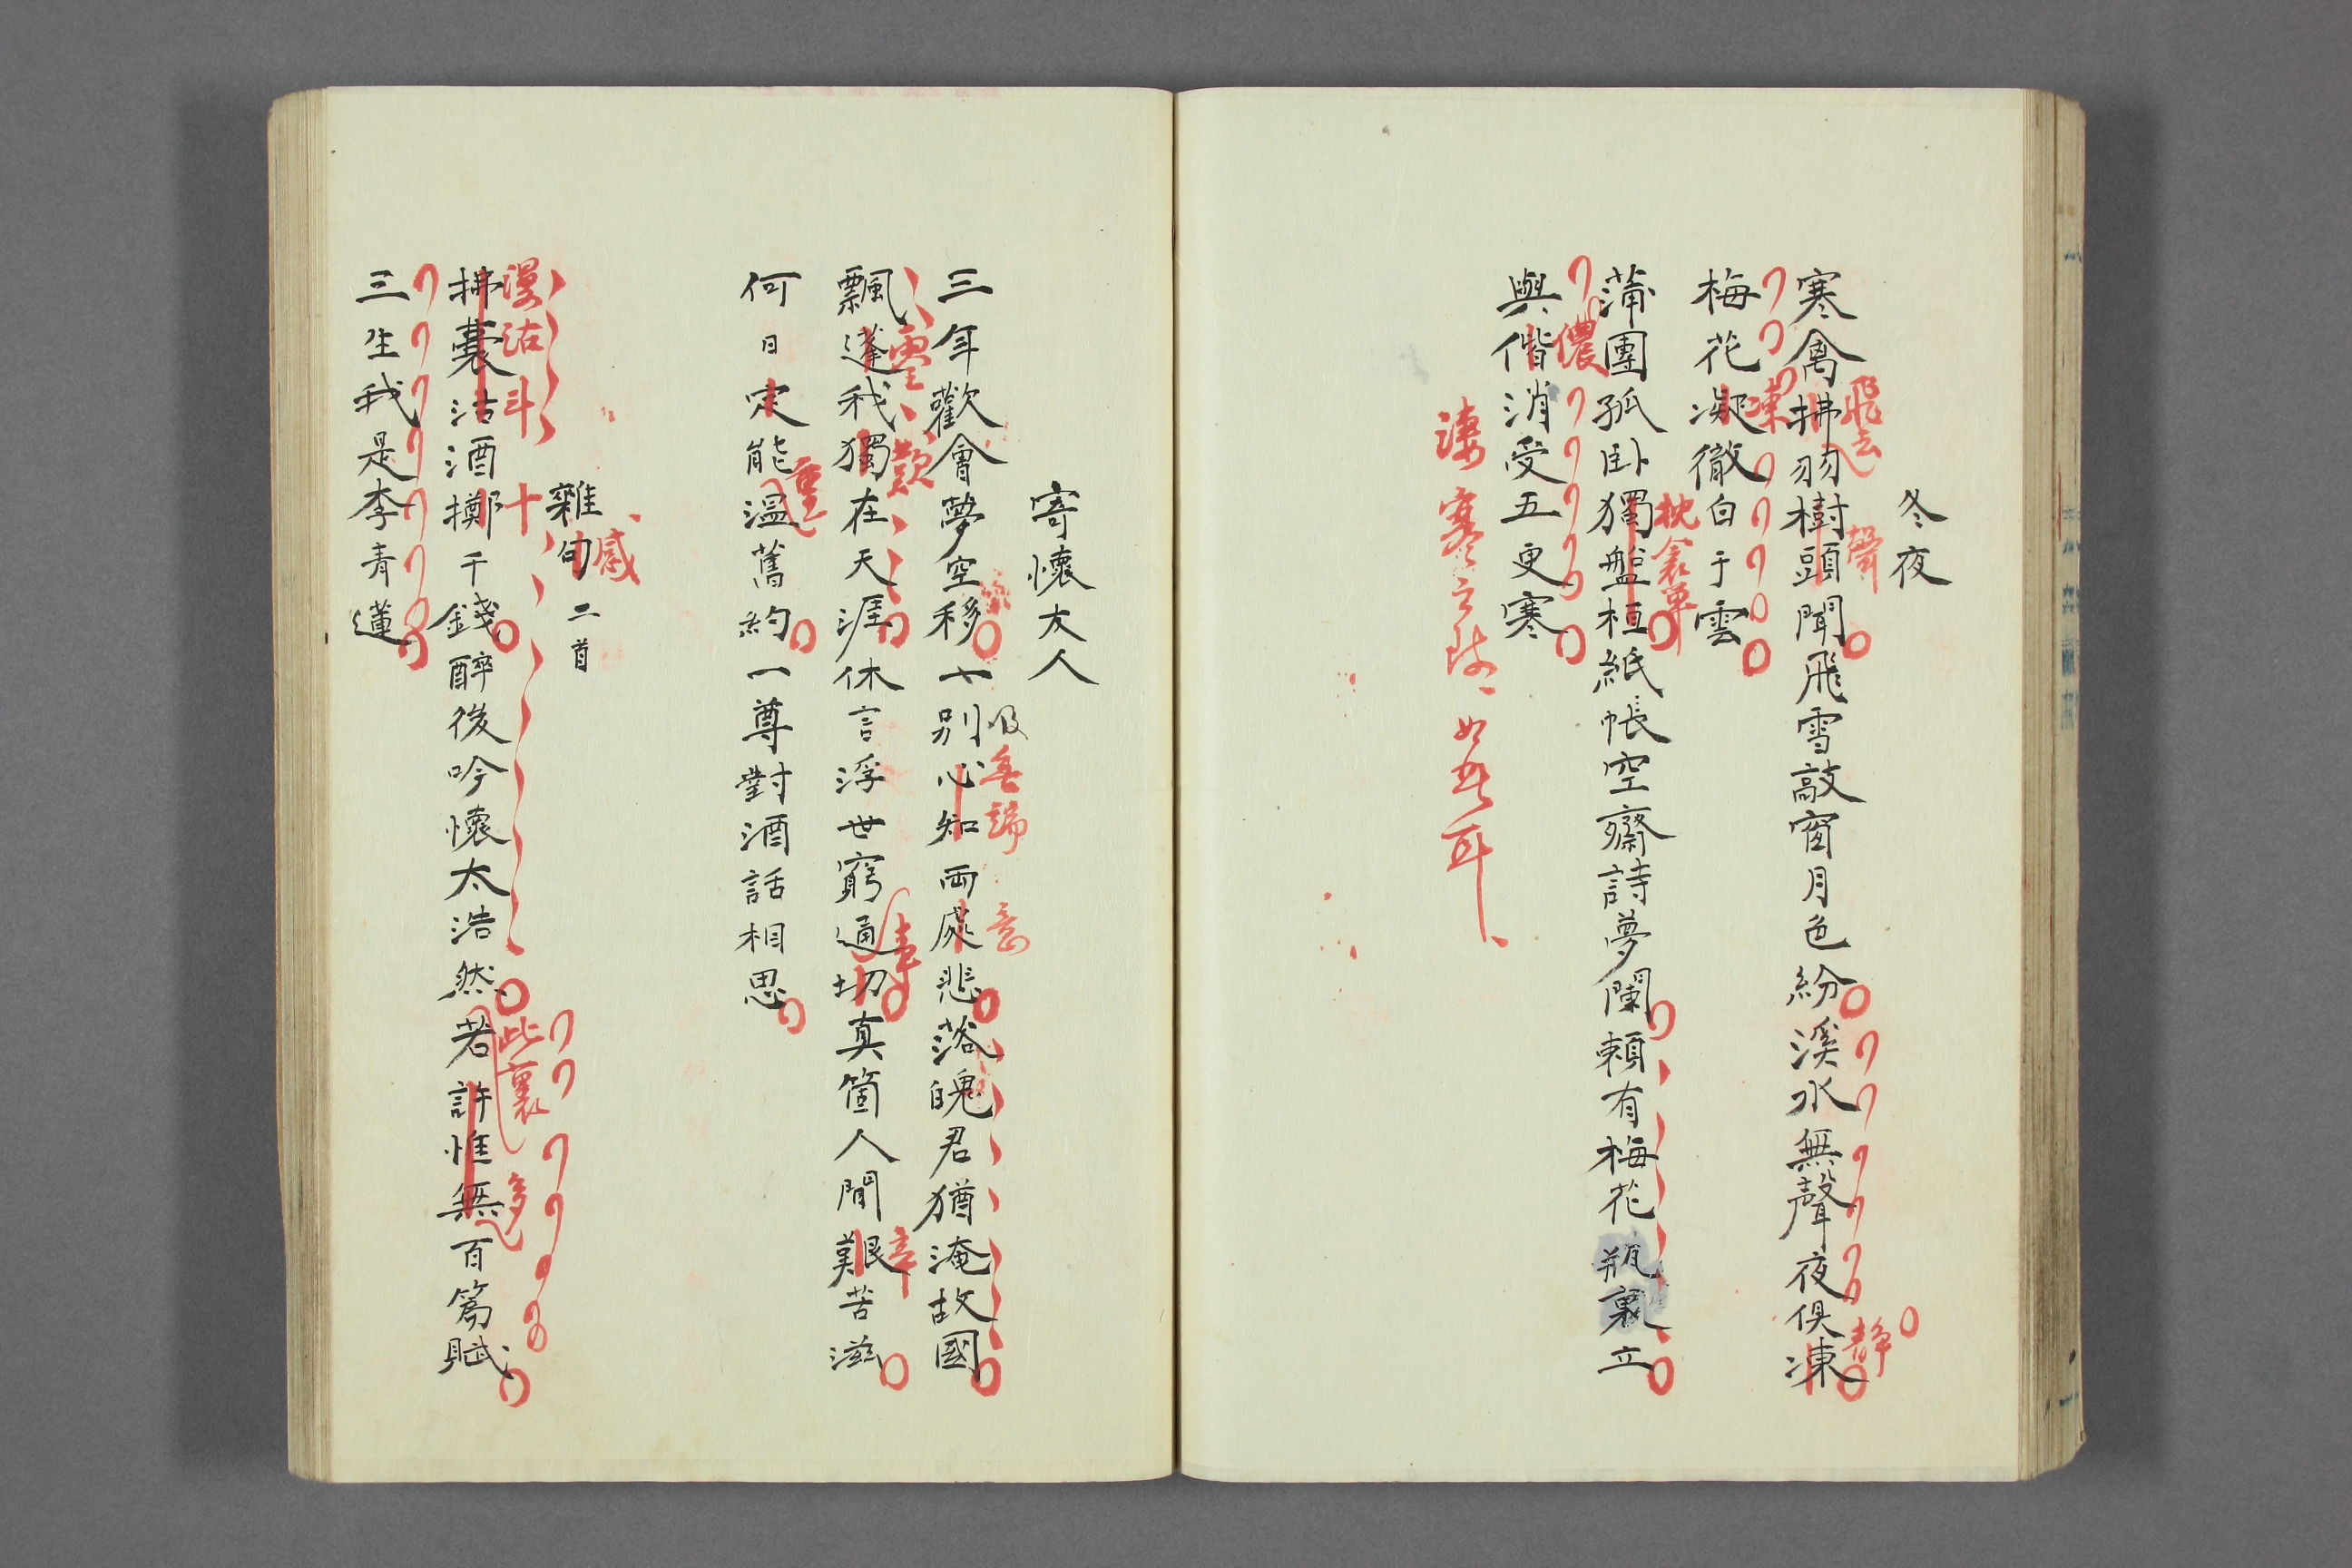 冬夜
寒禽拂羽樹頭聞飛雪敲窗月色紛溪水無聲夜俱凍
飛去
聲
靜
梅花凝徹白于雲
凍
蒲團孤臥獨盤桓紙帳空齋詩夢闌賴有梅花瓶裏立
枕衾單
與偕消受五更寒
儂
淒寒之味如是耳
寄懷友人
三年歡會夢空移一別心知兩處悲落魄君猶淹故國
無端
飄蓬我獨在天涯休言浮世窮通切真箇人間艱苦滋
零
歎
辛
何日定能溫舊約一尊對酒話相思
重
雜句二首
感
拂囊沽酒擲千錢醉後吟懷太浩然若許惟無百篇賦
漫沽斗
十
此裏
多
三生我是李青蓮